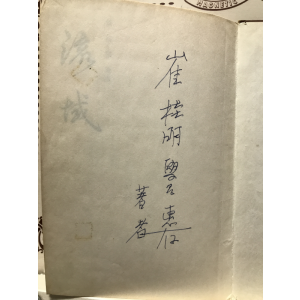 崔桂明學兄惠存
著者
流域